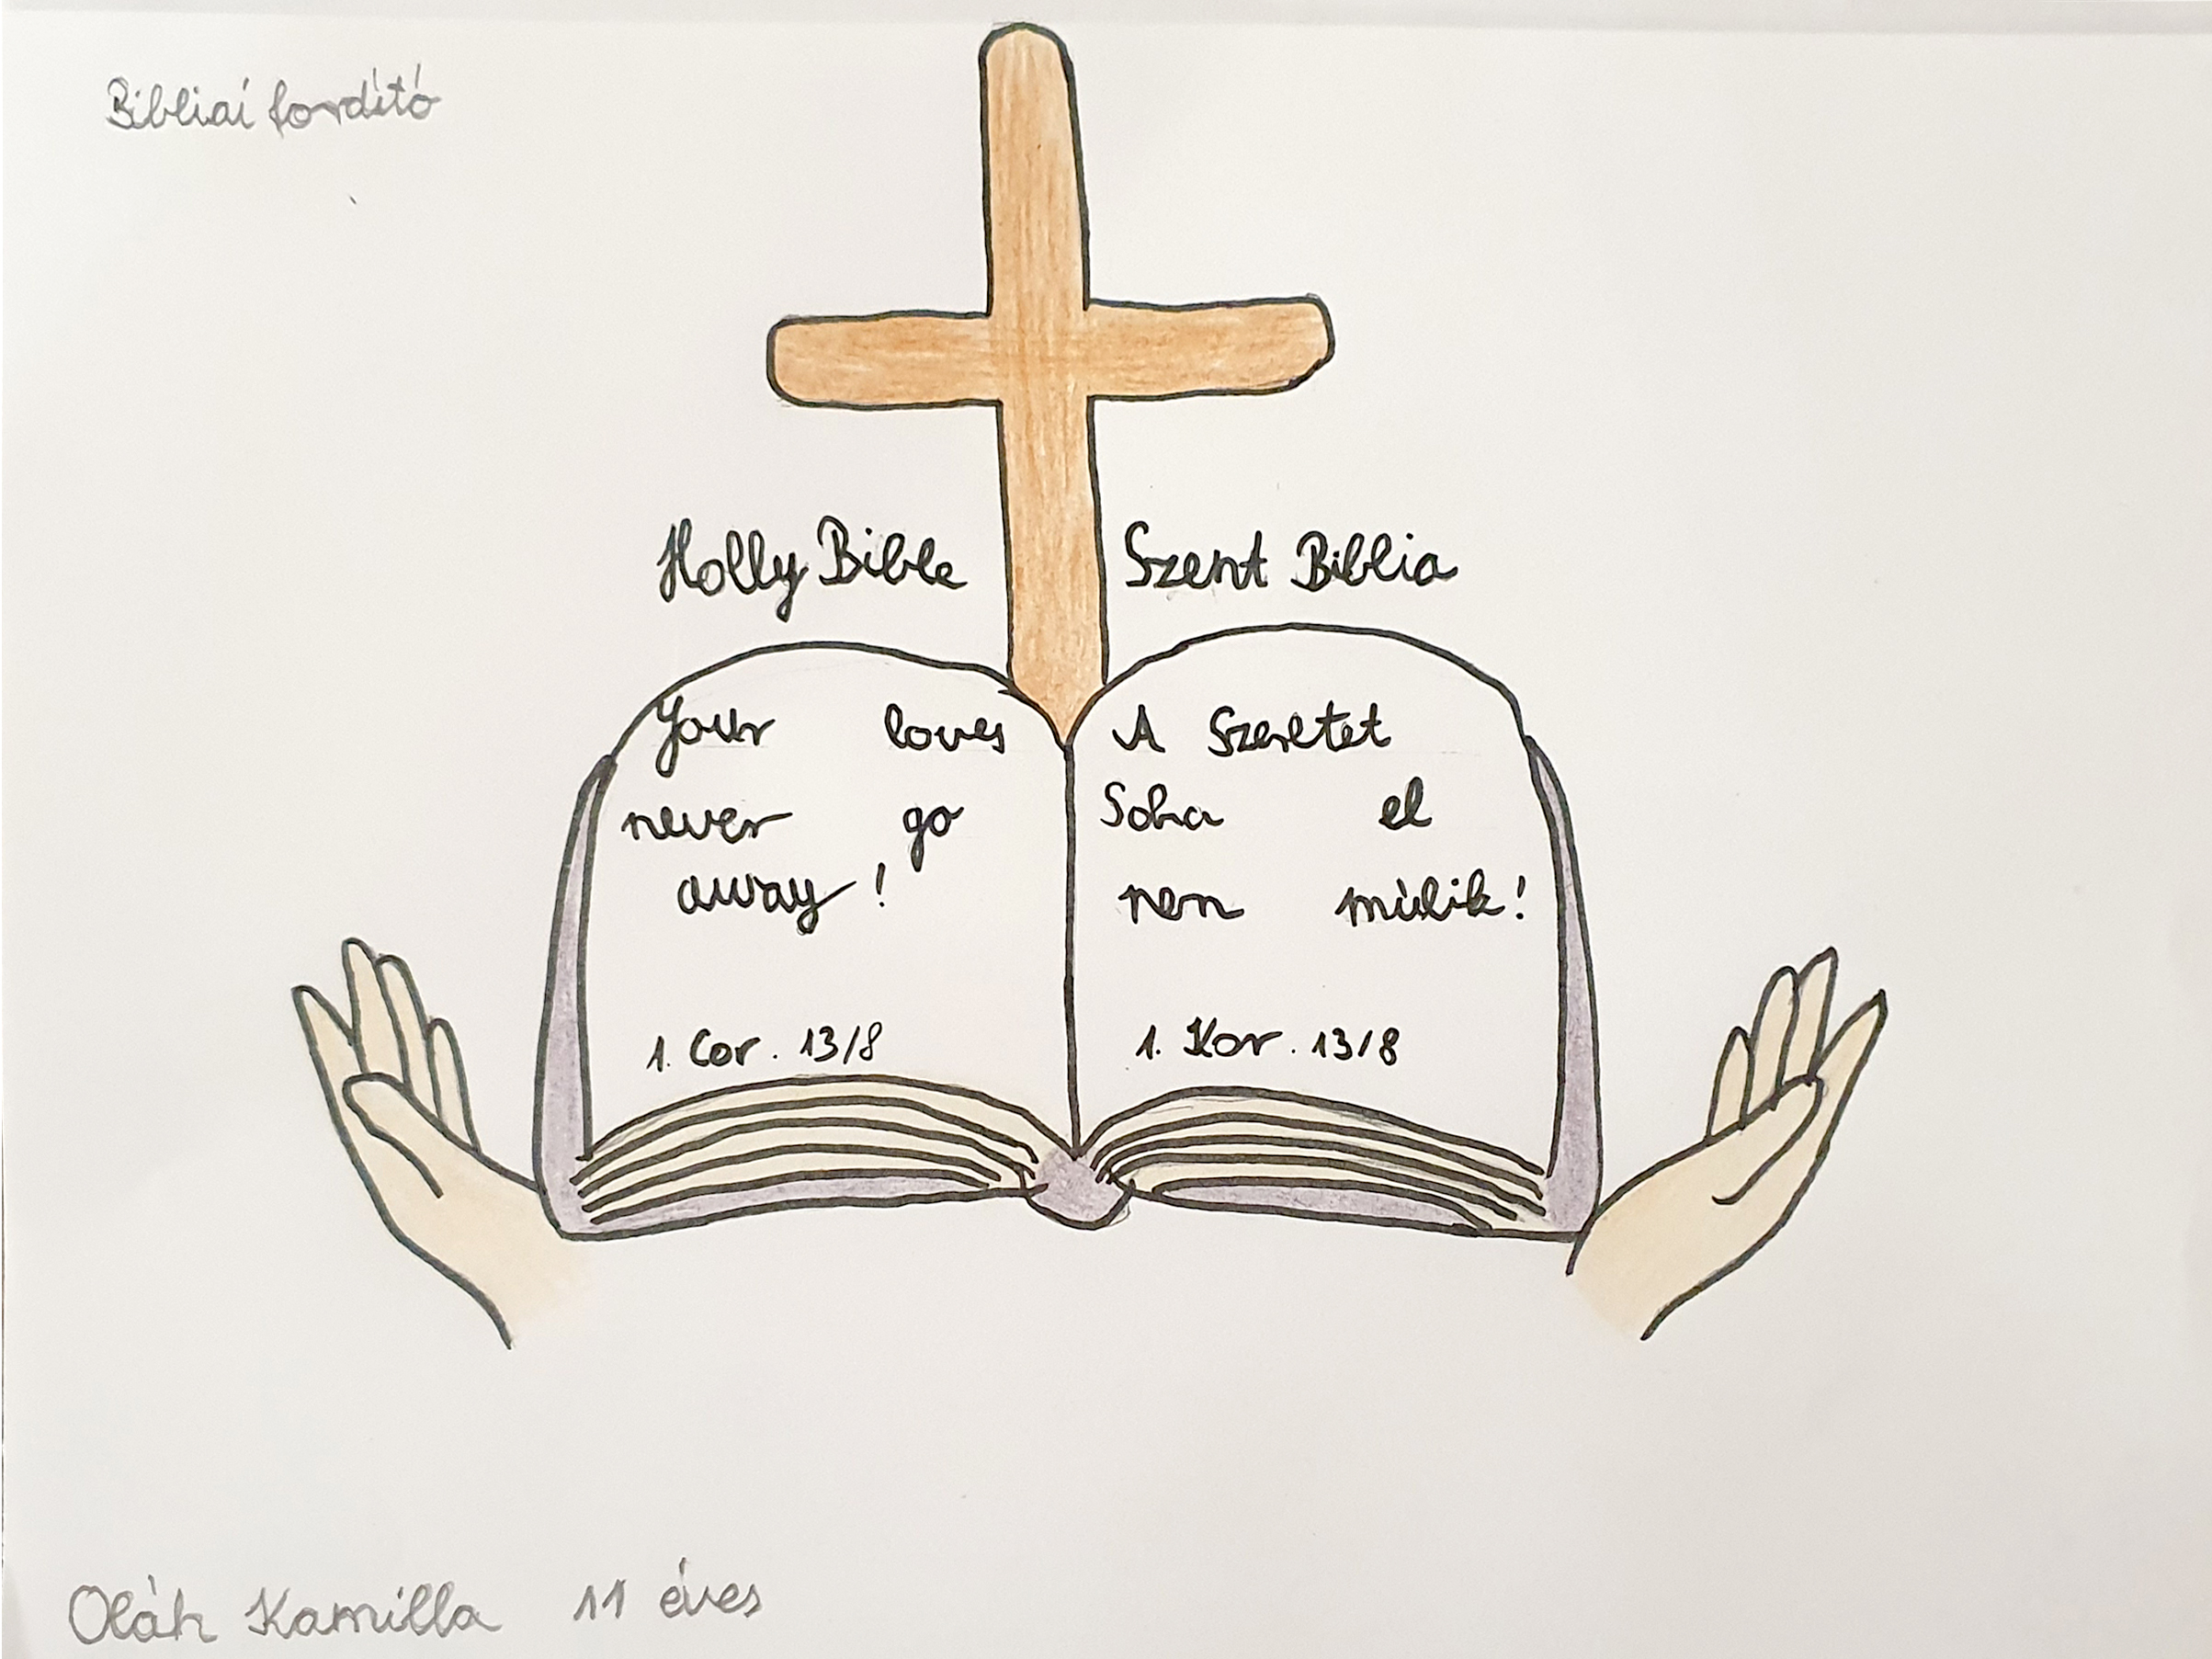 Bibliai fordító
Holly Bible
Szent Biblia
Your loves
never go
away!
1. Cor. 13/8
A Szeretet
Soha el
nem múlik!
1. Kor. 13/8
Oláh Kamilla 11 éves